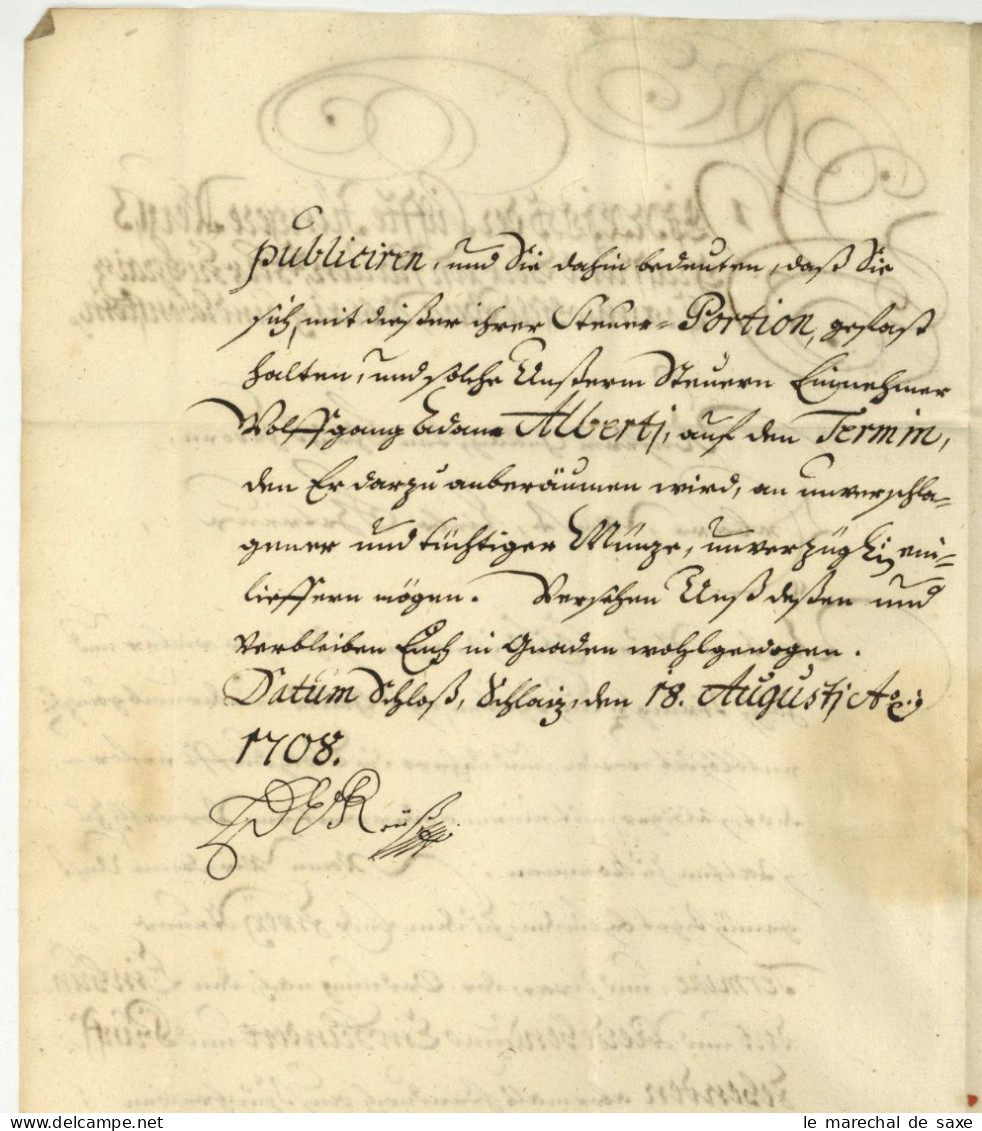 publiciren, und Sie dahin bedeuten, daß Sie
sich, mit dießer ihrer Steuer-Portion, gefast
halten, und solche Unßerm Steuern Einnehmer
Wolffgang Adam Albertj, auf den Termin,
den Er darzu anberäumen wird, an unverschla-
gener und tüchtiger Münze, unverzüglich ein-
lieffern mögen. Versehen Unß deßen und
verbleiben Euch in Gnaden wohlgewogen.
Datum Schloß, Schlaiz, den 18. Augustj Ao.
1708.
Reuß
le marechal de saxe